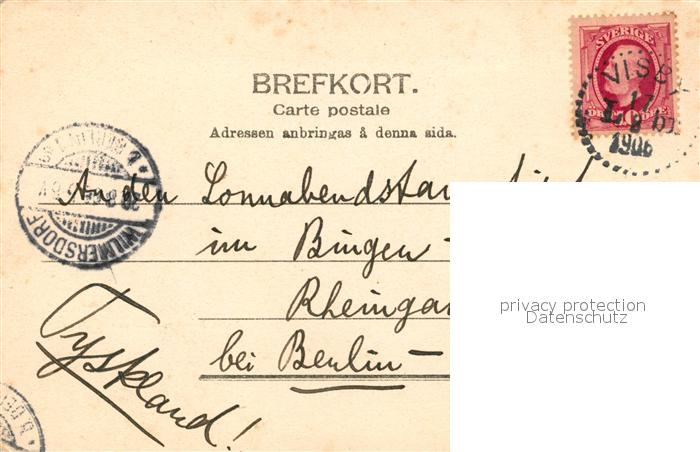 BREFKORT.
Carte postale
Adressen anbringas å denna sida.
SVERIGE
VISBY
17
8
1906
WILMERSDORF
An den Sonnabendstam
im Bingen-
Rheingau
bei Berlin-
Tyskland!
privacy protection
Datenschutz